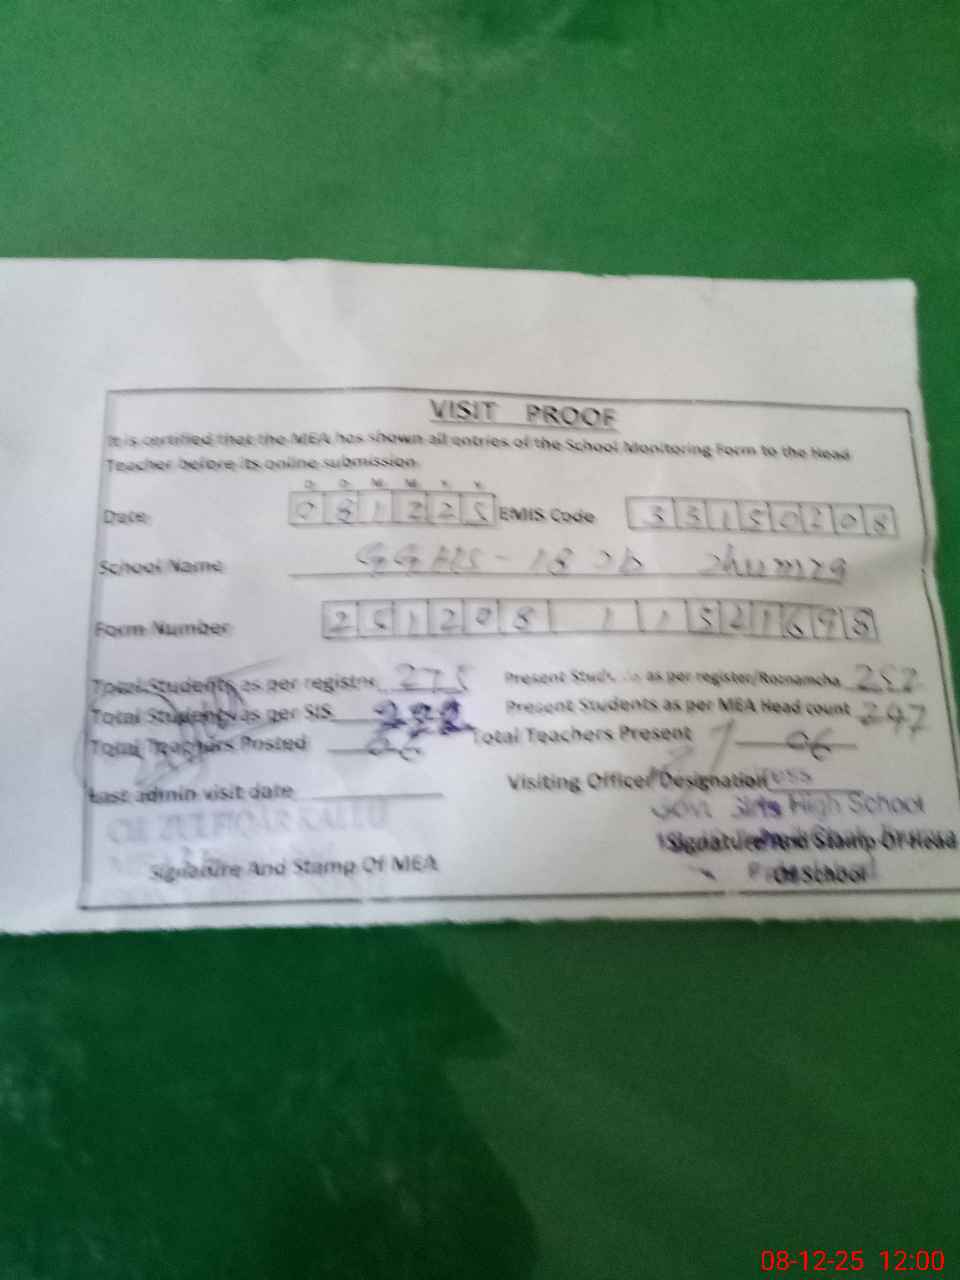 VISIT PROOF
It is certified that the MEA has shown all entries of the School Monitoring Form to the Head
Teacher before its online submission.
D. D. M. M. Y. Y.
Date: 081225 EMIS Code 33150208
School Name GGHS - 18
Form Number 251208 1 1521698
Total Students as per register 275 Present Students as per register/Roznamcha 252
Total Students as per SIS Present Students as per MEA Head count 247
Total Teachers Posted 06 Total Teachers Present 06
Last admin visit date Visiting Officer Designation
Govt Girls High School
CH ZULFIQAR
Signature And Stamp Of Head
Signature And Stamp Of MEA
Of School
08-12-25 12:00